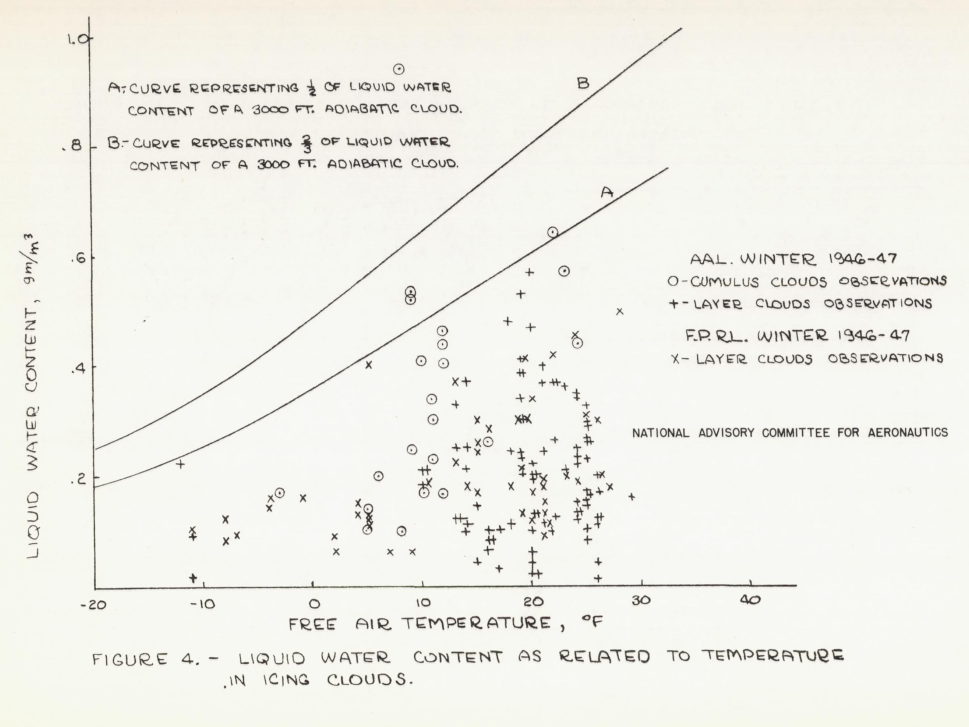 1.0
.8
.6
.4
.2
LIQUID WATER CONTENT, gm/m³
A:-CURVE REPRESENTING ½ OF LIQUID WATER
CONTENT OF A 3000 FT. ADIABATIC CLOUD.
B:-CURVE REPRESENTING ⅔ OF LIQUID WATER
CONTENT OF A 3000 FT. ADIABATIC CLOUD.
B
A
AAL. WINTER 1946-47
O-CUMULUS CLOUDS OBSERVATIONS
+-LAYER CLOUDS OBSERVATIONS
F.P.R.L. WINTER 1946-47
X-LAYER CLOUDS OBSERVATIONS
NATIONAL ADVISORY COMMITTEE FOR AERONAUTICS
-20 -10 0 10 20 30 40
FREE AIR TEMPERATURE, °F
FIGURE 4. - LIQUID WATER CONTENT AS RELATED TO TEMPERATURE
IN ICING CLOUDS.